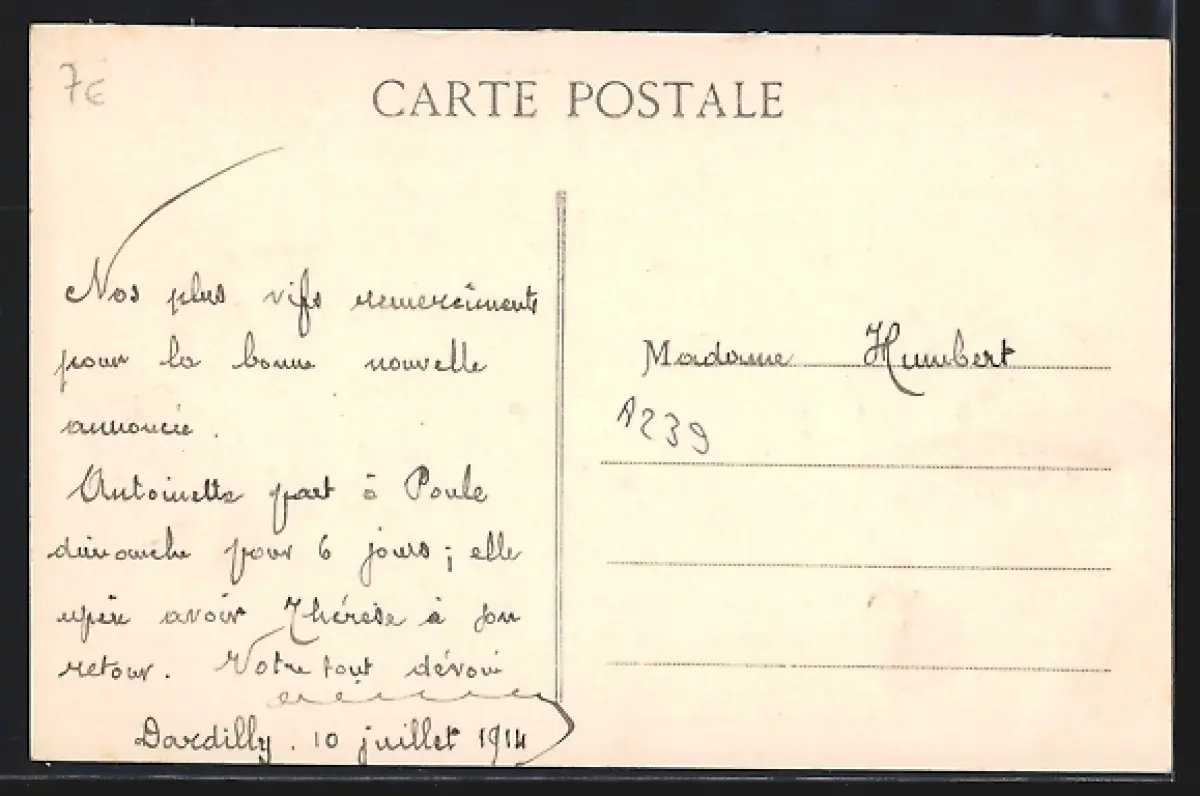 7€
CARTE POSTALE
Nos plus vifs remerciments
pour la bonne nouvelle
annoncée.
Antoinette part à Poule
dimanche pour 6 jours ; elle
espère avoir Thérèse à son
retour. Votre tout dévoué
Dardilly. 10 juillet 1914
Madame Humbert
A239